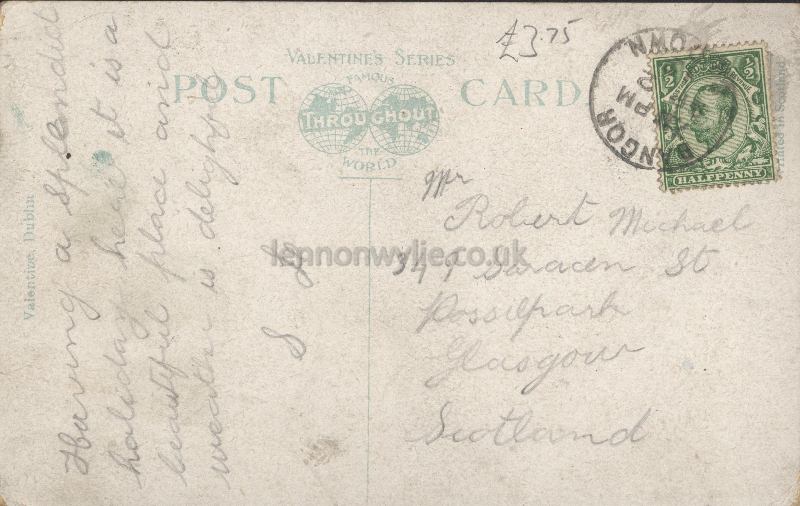 £3.75
VALENTINE'S SERIES
POST CARD
FAMOUS
THROUGHOUT
THE
WORLD
BANGOR
DOWN
PM
½ ½
HALFPENNY
Printed in Scotland
Valentine, Dublin
Having a splendid
holiday here it is a
beautiful place and
weather is delightful
S
Robert Michael
349 Saracen St
Possilpark
Glasgow
Scotland
lennonwylie.co.uk